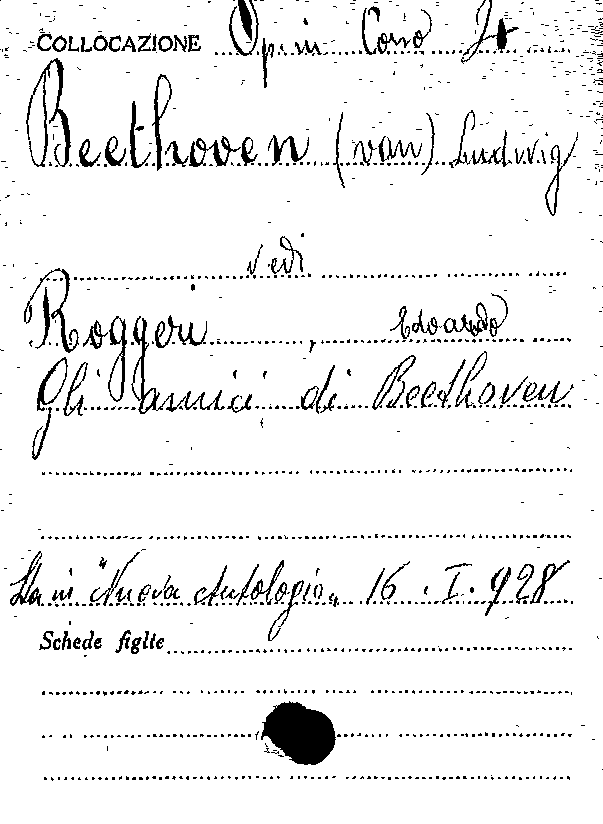 COLLOCAZIONE Op. in Corso It
Beethoven (van) Ludwig
vedi
Roggeri, Edoardo
Gli amici di Beethoven
Sta in "Nuova Antologia" 16. I. 928
Schede figlie